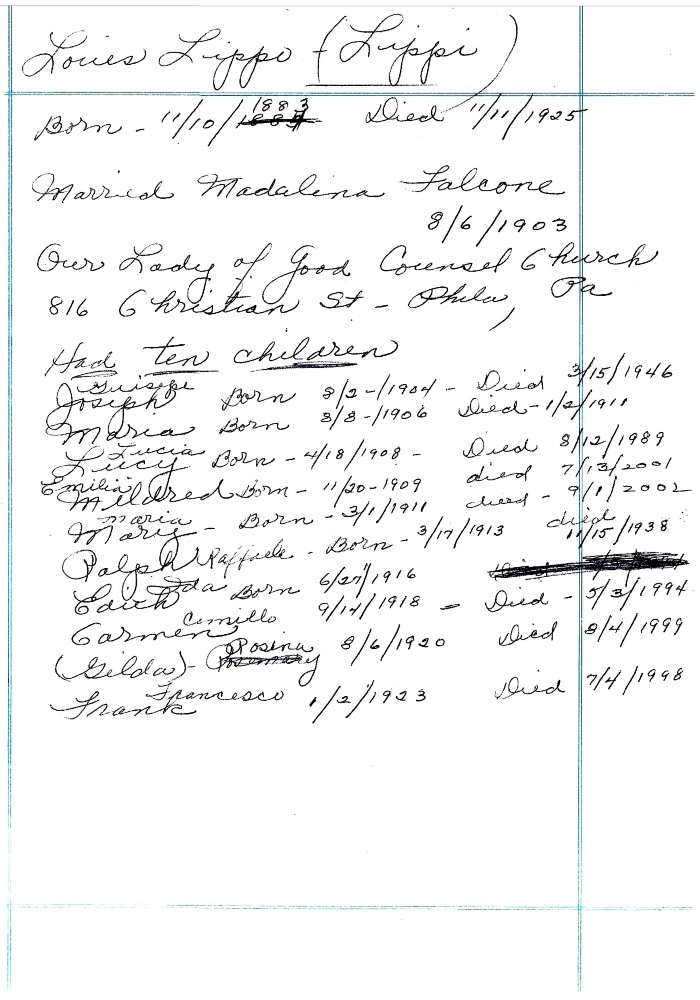 Louis Lippo (Lippi)
Born - 11/10/1883 Died 11/11/1925
Married Madalina Falcone
8/6/1903
Our Lady of Good Counsel Church
816 Christian St - Phila, Pa
Had ten children
Guisepe
Joseph Born 8/2-/1904 - Died 3/15/1946
Maria Born 8/8-1906 Died-1/2/1911
Lucia
Lucy Born - 4/18/1908 - Died 8/12/1989
Emilia
Mildred Born - 11/20-1909 died 7/13/2001
Maria
Mary - Born - 3/1/1911 died - 9/1/2002
Ralph Raffaele - Born - 3/17/1913 died 11/15/1938
Edith Ida Born 6/27/1916
Carmen Camillo 9/14/1918 - Died - 5/3/1994
(Gilda) - Rosina 8/6/1920 Died 8/4/1999
Frank Francesco 1/2/1923 Died 7/4/1998